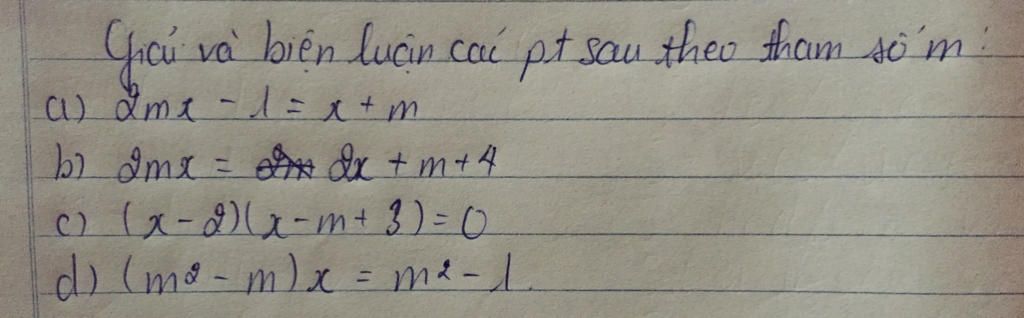 Giải và biện luận các pt sau theo tham số m:
a) 2mx - 1 = x + m
b) 2mx = 2x + m + 4
c) (x - 2)(x - m + 3) = 0
d) (m² - m)x = m² - 1.